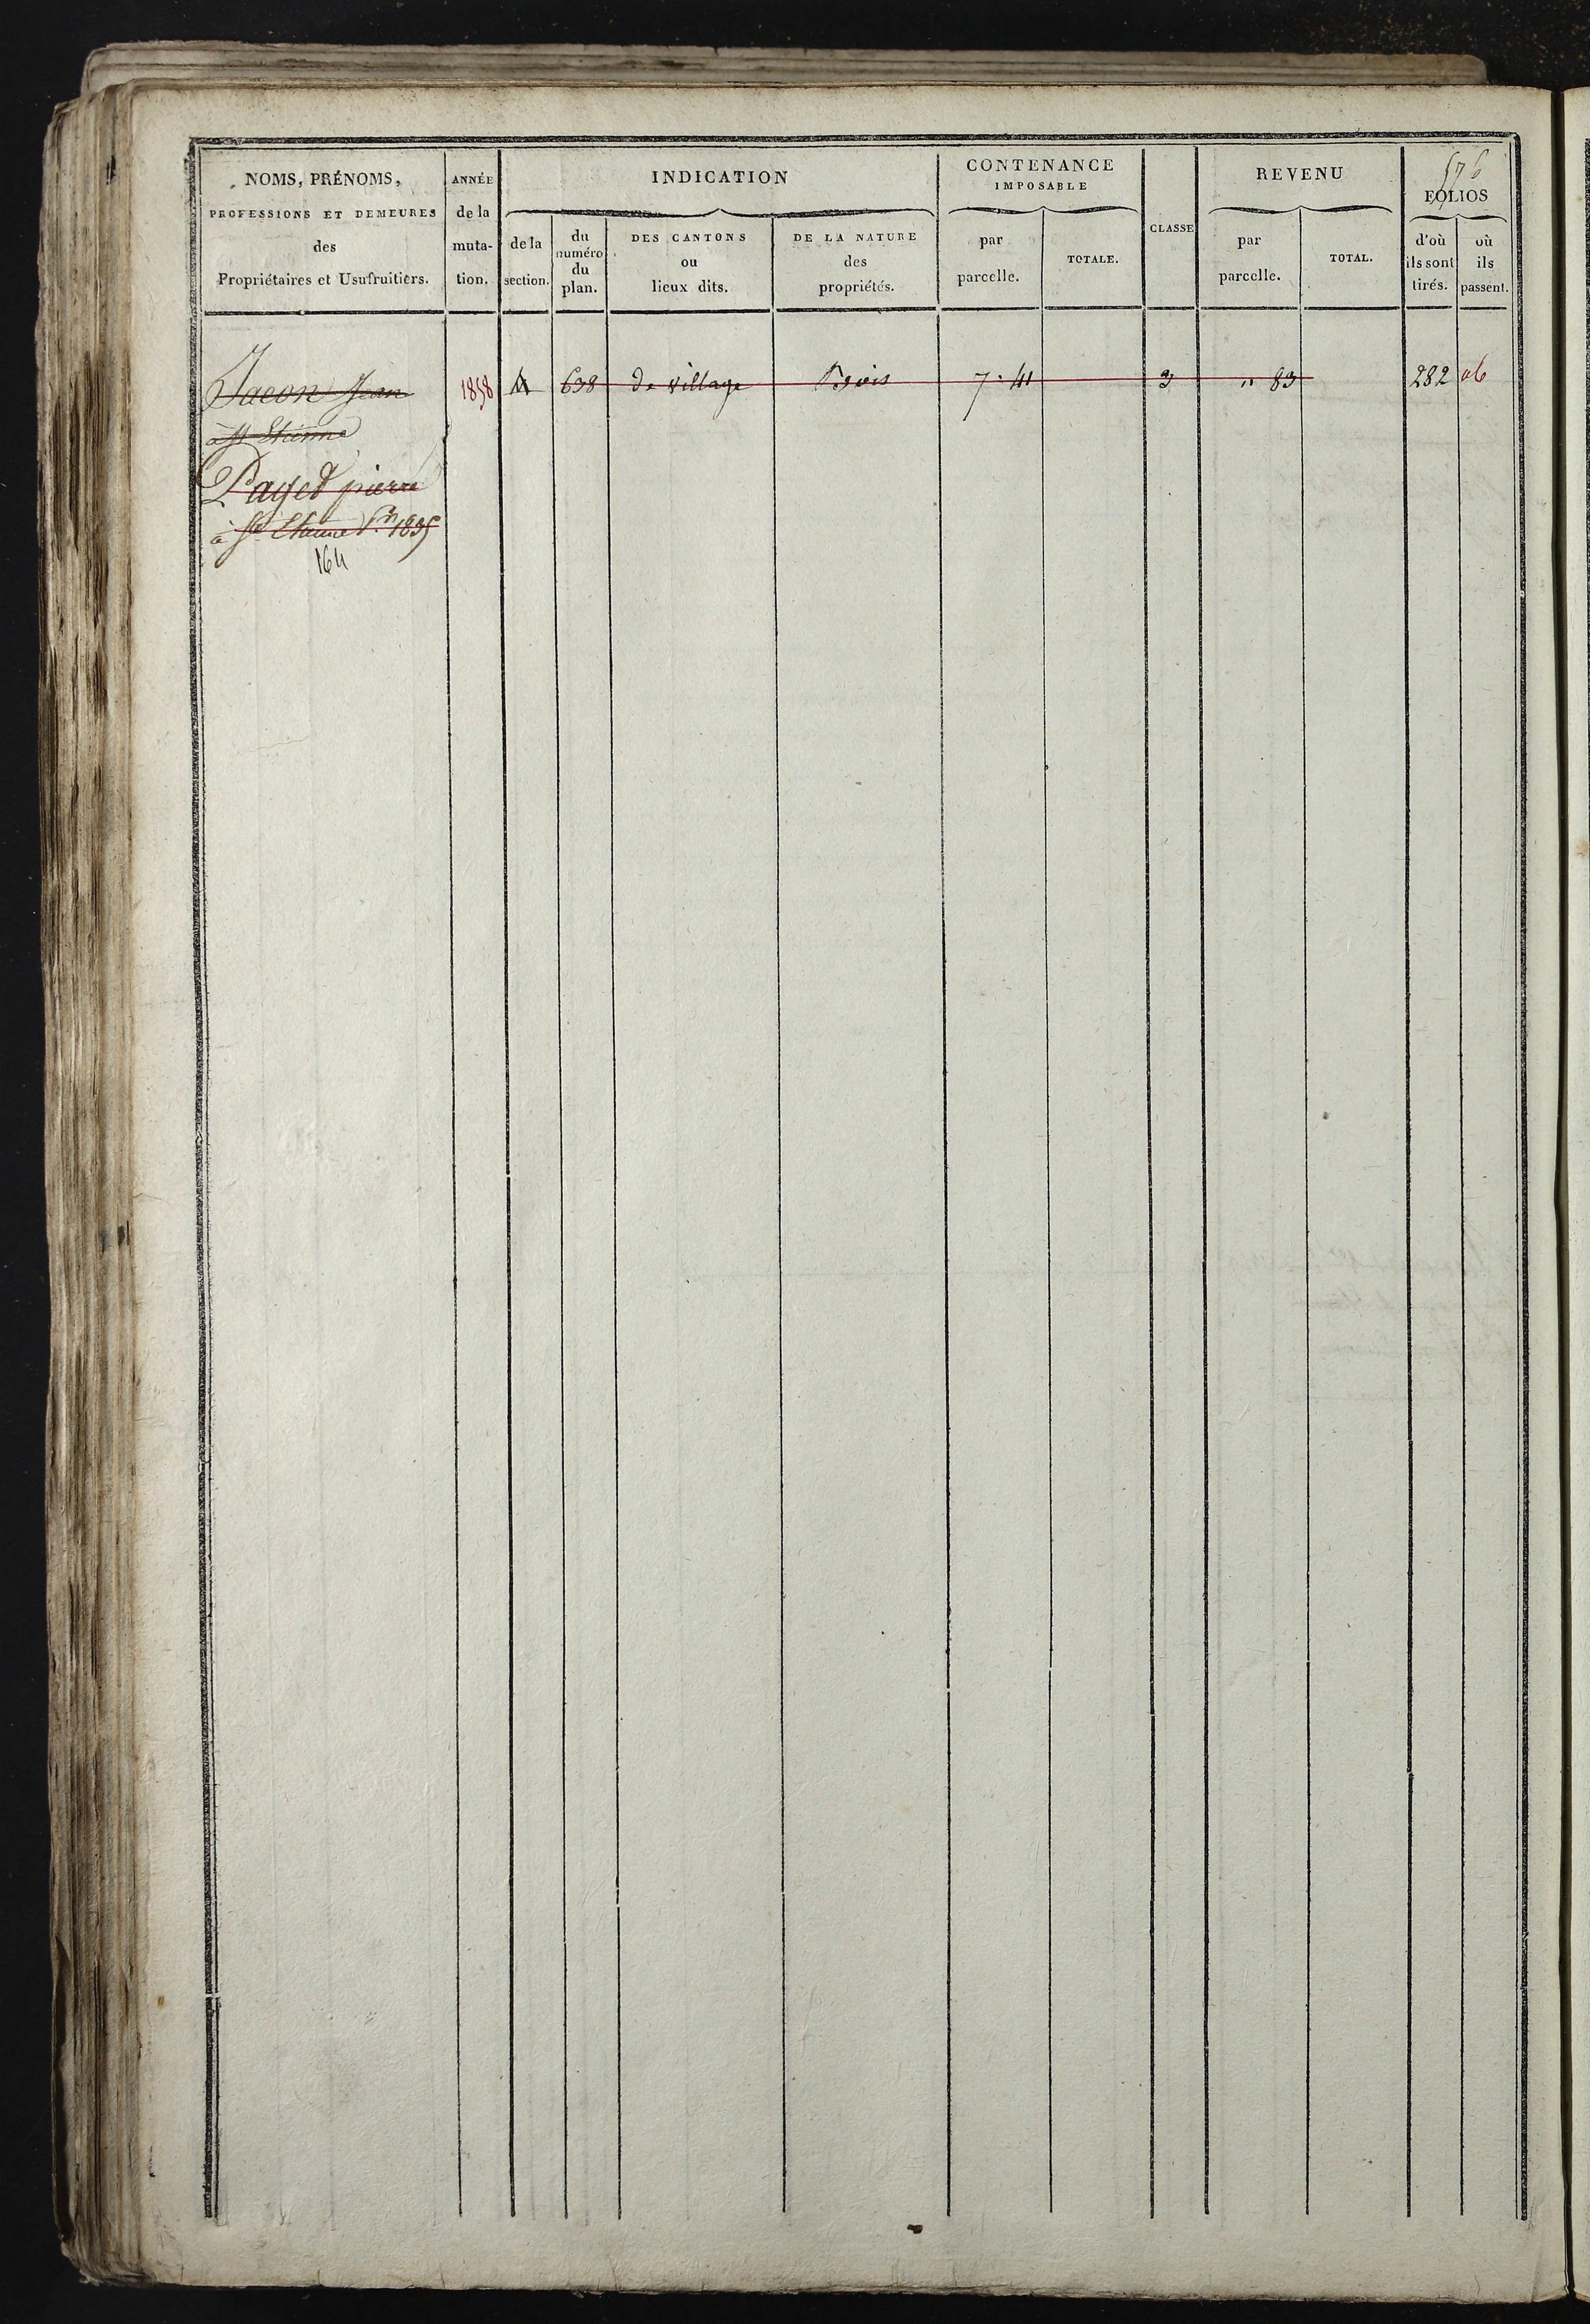 576
NOMS, PRÉNOMS,
PROFESSIONS ET DEMEURES
des
Propriétaires et Usufruitiers.
ANNÉE
de la
muta-
tion.
INDICATION
de la
section.
du
numéro
du
plan.
DES CANTONS
ou
lieux dits.
DE LA NATURE
des
propriétés.
CONTENANCE
IMPOSABLE
par
parcelle.
TOTALE.
CLASSE
REVENU
par
parcelle.
TOTAL.
FOLIOS
d'où
ils sont
tirés.
où
ils
passent.
Jacon Jean 1858 A 638 de village Bois 7 . 41 3 " 83 282
à St Etienne
Paget pierre
à St Etienne 1835
164